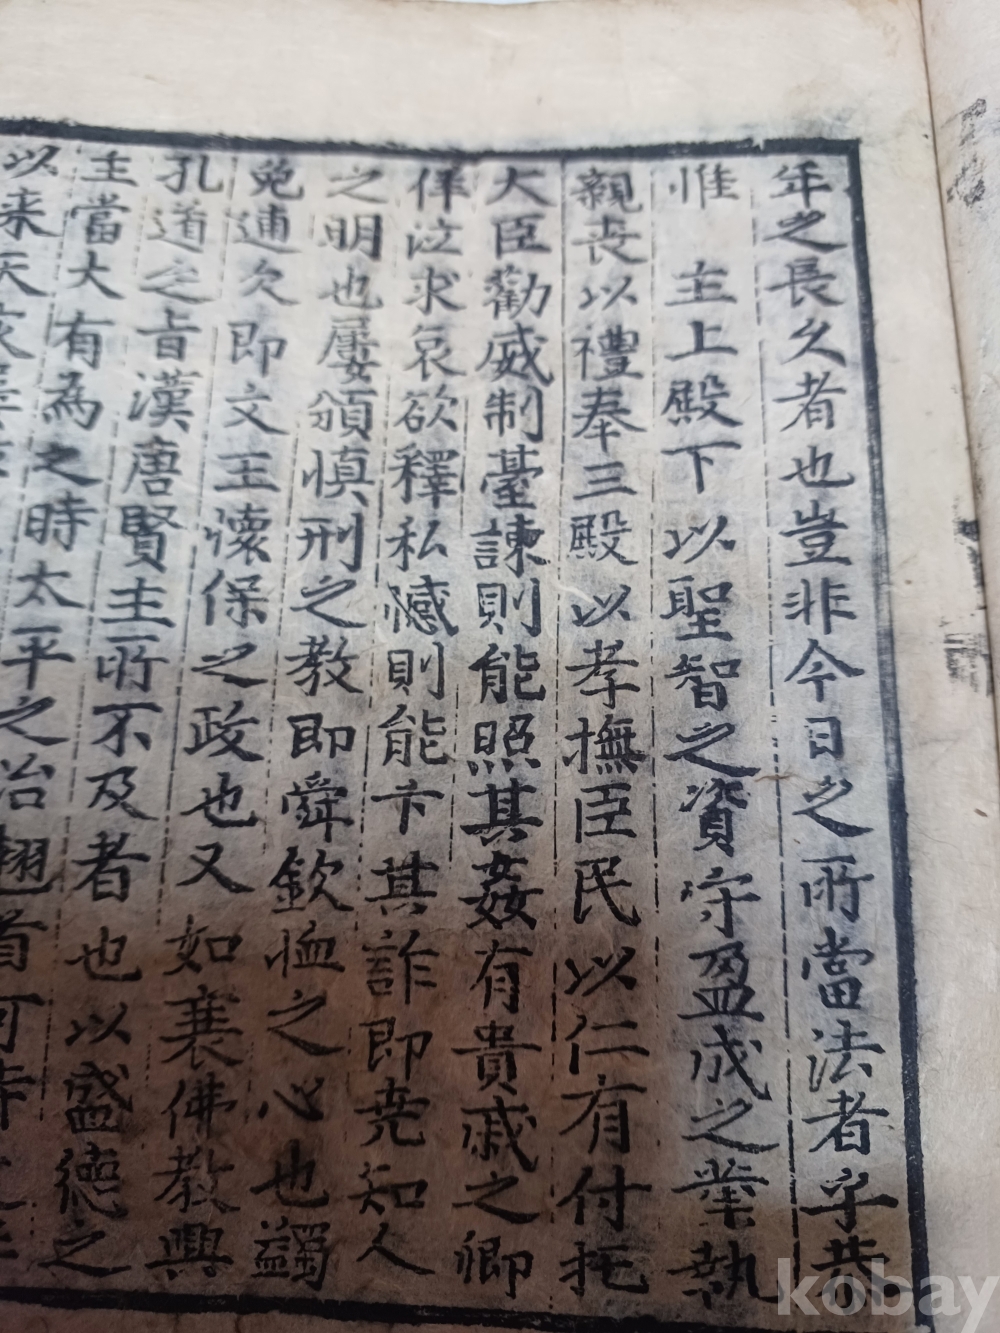 年之長久者也豈非今日之所當法者乎恭
惟 主上殿下以聖智之資守盈成之業執
親喪以禮奉三殿以孝撫臣民以仁有付托
大臣勸威制臺諫則能照其姦有貴戚之卿
佯泣求哀欲釋私憾則能卞其詐即堯知人
之明也屢頒慎刑之教即舜欽恤之心也蠲
免逋欠即文王懷保之政也又如褰佛教興
孔道之旨漢唐賢主所不及者也以盛德之
主當大有為之時太平之治翹首可
以来天
kobay